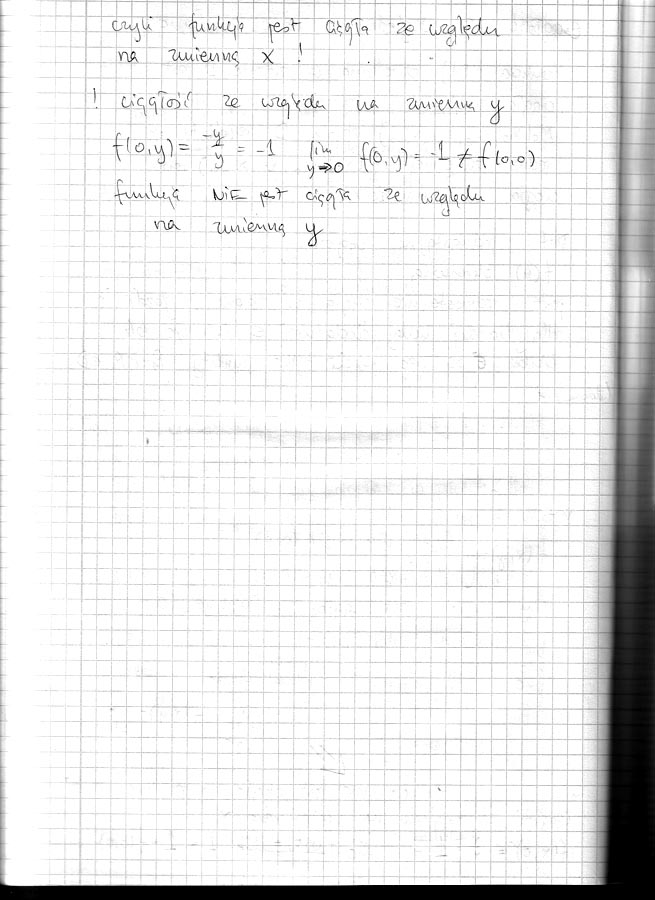 czyli funkcja jest ciągła ze względu
na zmienną x !
! ciągłość ze względu na zmienną y
f(0,y) = -y/y = -1 lim y→0 f(0,y) = -1 ≠ f(0,0)
funkcja NIE jest ciągła ze względu
na zmienną y